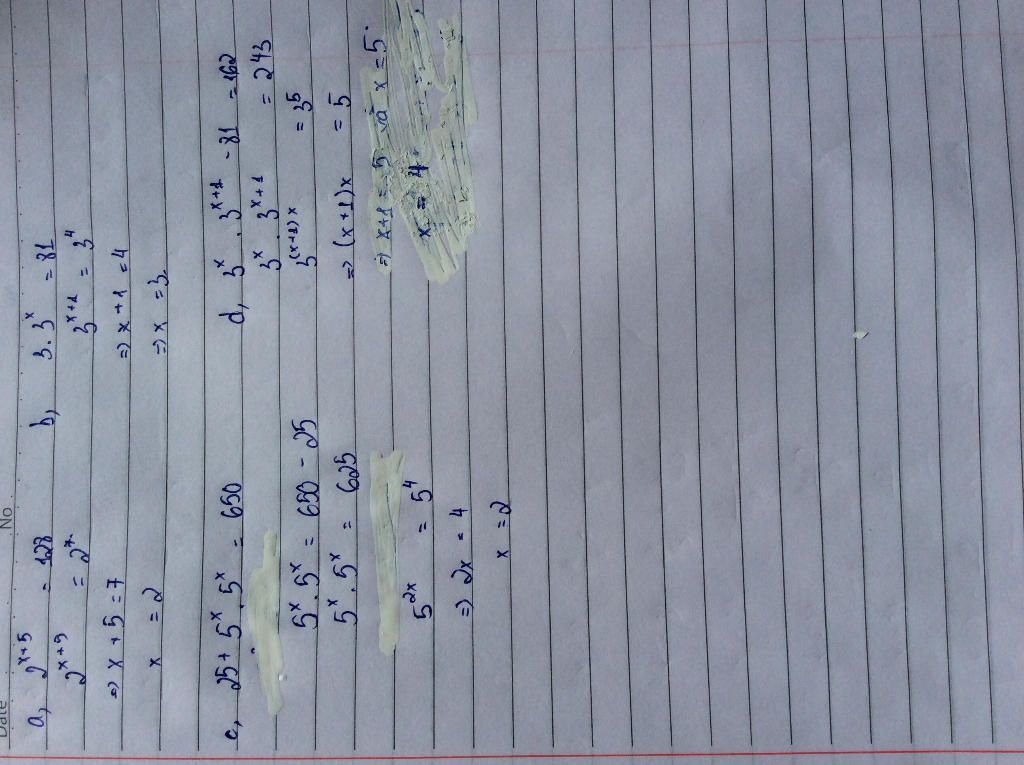 Date No
a, 2^{x+5} = 128
2^{x+5} = 2^7
=> x + 5 = 7
x = 2
b, 3 . 3^x = 81
3^{x+1} = 3^4
=> x + 1 = 4
=> x = 3
c, 25 + 5^x . 5^x = 650
5^x . 5^x = 650 - 25
5^x . 5^x = 625
5^{2x} = 5^4
=> 2x = 4
x = 2
d, 3^x . 3^{x+1} - 81 = 162
3^x . 3^{x+1} = 243
3^{(x+1)x} = 3^5
=> (x+1)x = 5
=> x+1 = 5 và x = 5
x = 4